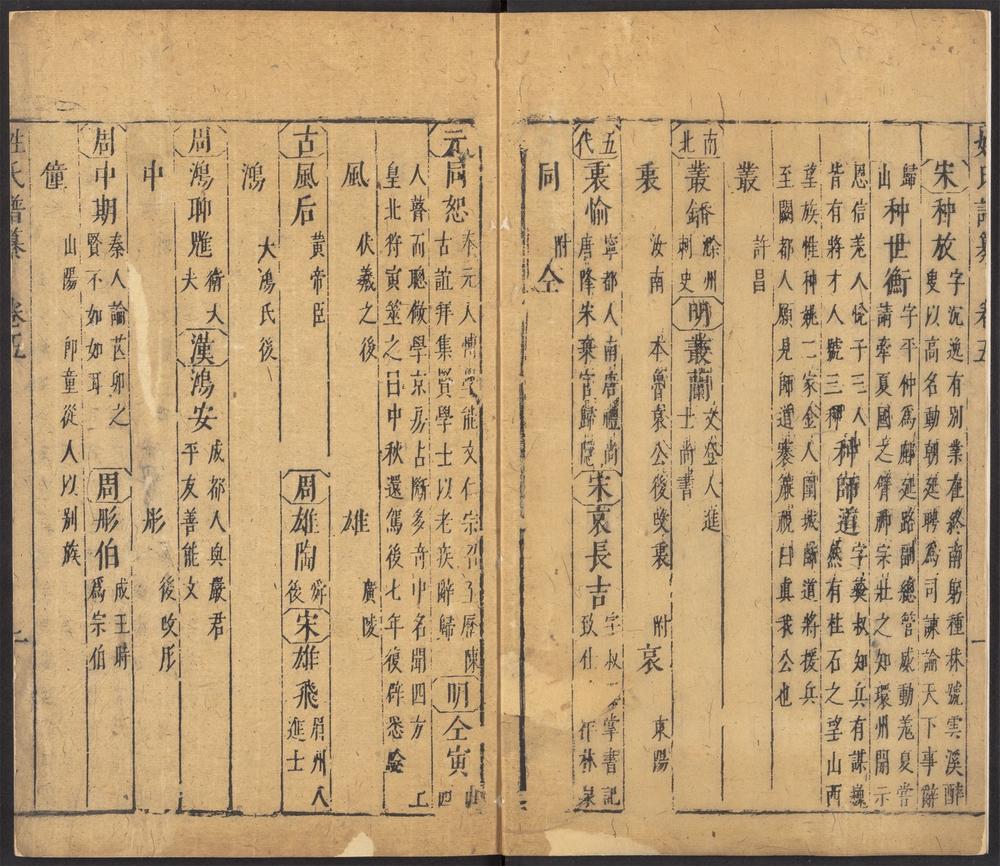 姓氏譜纂 卷五 一
宋 种放 字沉逸有別業在終南躬種秫號雲溪醉
叟以高名動朝廷聘為司諫論天下事辭
歸山 种世衡 字平仲為鄜延路副總管威動羌夏嘗
請牽夏國之臂神宗壯之知環州開示
恩信羌人悅子三人
皆有將才人號三种 种師道 字彝叔知兵有謀巍
然有柱石之望山西
望族惟种姚二家金人圍城師道將援兵
至闕都人願見師道褰簾視曰真我公也
叢 許昌
南北 叢鐇 滁州
刺史 明 叢蘭 文登人進
士尚書
裒 汝南 本魯哀公後改裒 附哀 東陽
五代 裒愉 寧都人南唐禮尚
唐降宋棄官歸隱 宋 哀長吉 字叔 掌書記
致仕 作林
同 附仝
元 同恕 奉元人博學能文仁宗召 歷陳
古誼拜集賢學士以老疾辭歸 明 仝寅 山
人瞽而聰倣學京房占斷多奇中名聞四方
皇北狩寅筮之曰中秋還駕後七年復辟悉驗
風 伏羲之後 雄 廣陵
古 風后 黃帝臣 周 雄陶 舜
後 宋 雄飛 眉州人
進士
鴻 大鴻氏後
周 鴻聊魋 衛大
夫 漢 鴻安 成都人與嚴君
平友善能文
中 彤 後改彤
周 中期 秦人論芒卯之
賢不如如耳 周 彤伯 成王時
為宗伯
僮 山陽 即童從人以別族
姓氏譜纂 卷五